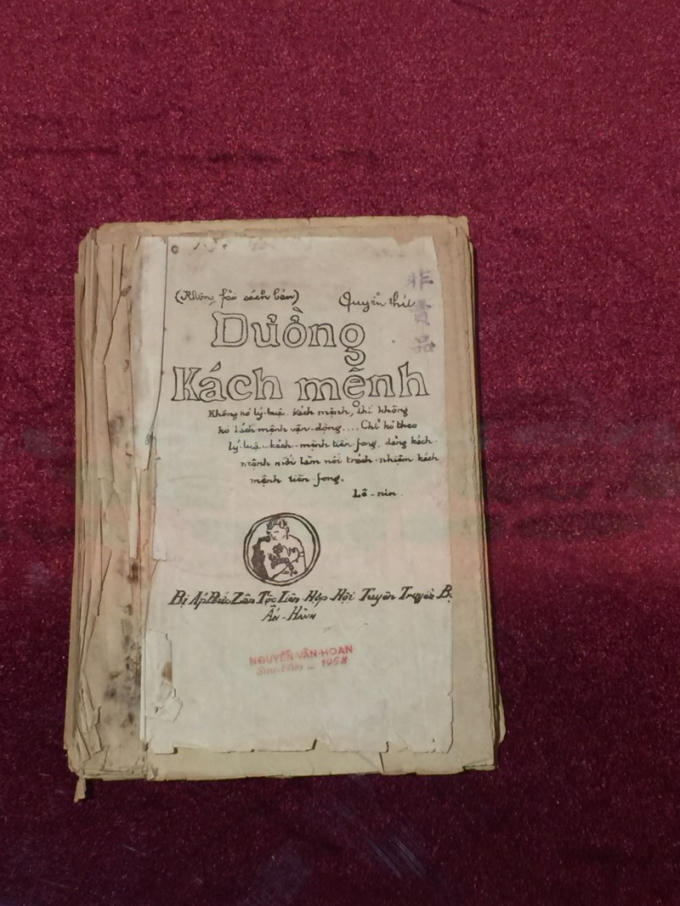 (Không fải sách bán) Quyển thứ
非賣品
Đường
Kách mệnh
Không kó lý luận kách mệnh, thì không
kó kách mệnh vận-động.... Chỉ kó theo
lý luận kách-mệnh tiên-fong, đảng kách-
mệnh mới làm nổi trách-nhiệm kách
mệnh tiên-fong.
Lê-nin.
Bị Áp Bức Zân Tộc Liên Hợp Hội Tuyên Truyền Bộ
Ấn-Hành
NGUYỄN-VĂN-HOAN
1968